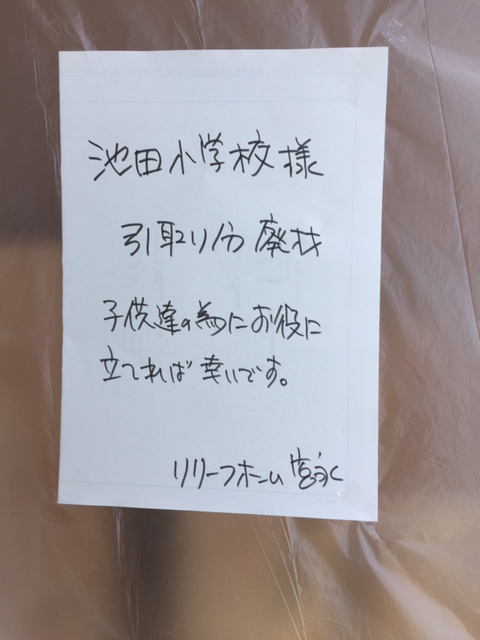 池田小学校様
引取り分 廃材
子供達の為にお役に
立てれば幸いです。
リリーフホーム 宮永